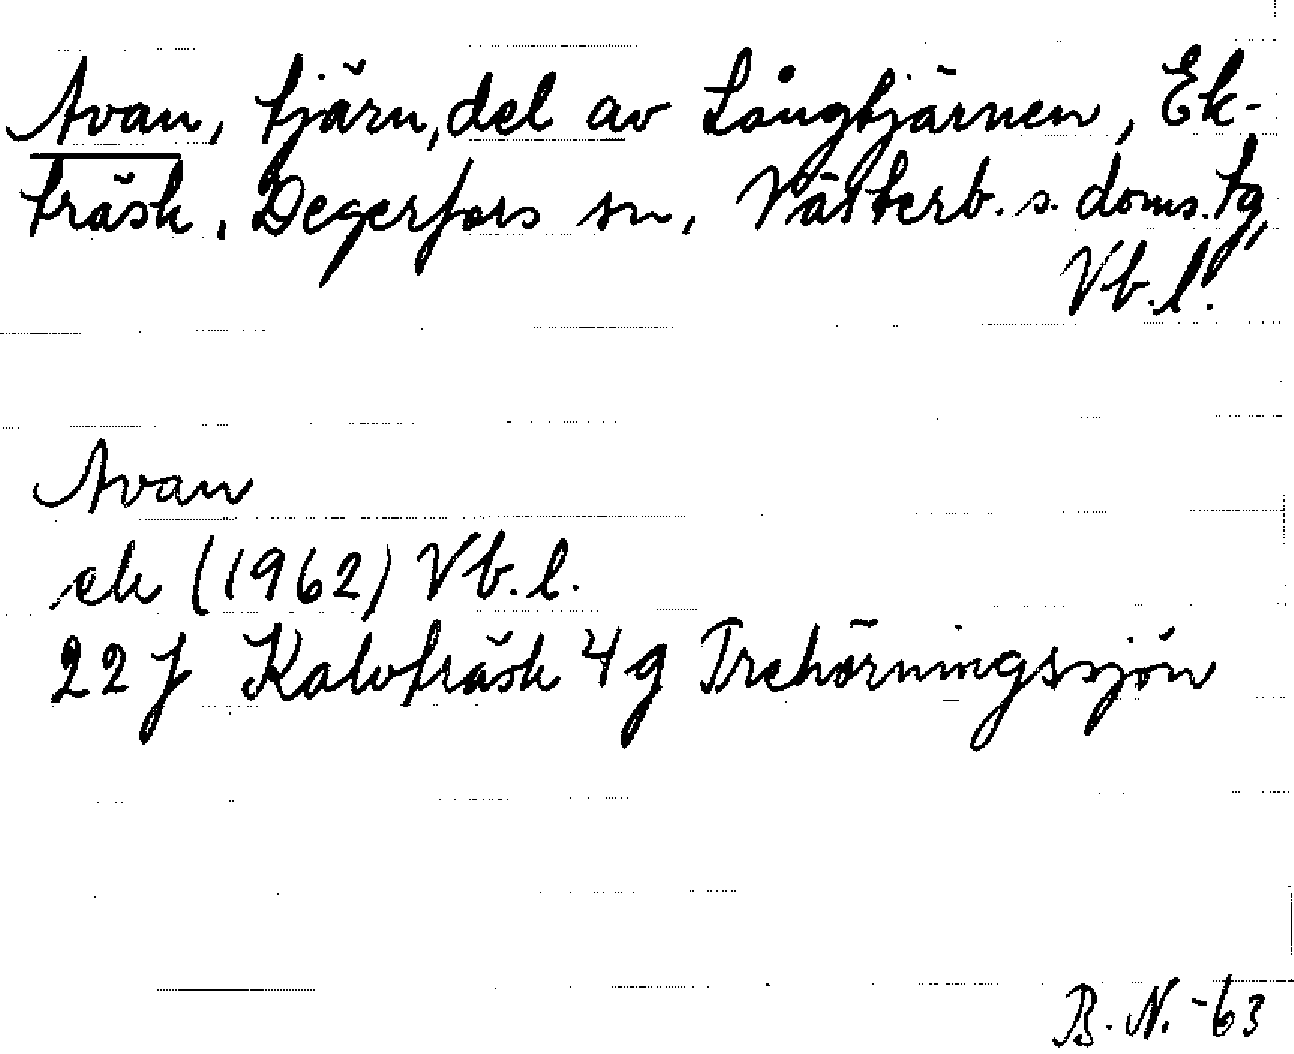 Avan, tjärn, del av Långtjärnen, Ek-
träsk, Degerfors sn, Västerb. s. doms. tg,
Vb. l.
Avan
ek (1962) Vb. l.
22 J Kalvträsk 4 g Trehörningssjön
B. N. -63